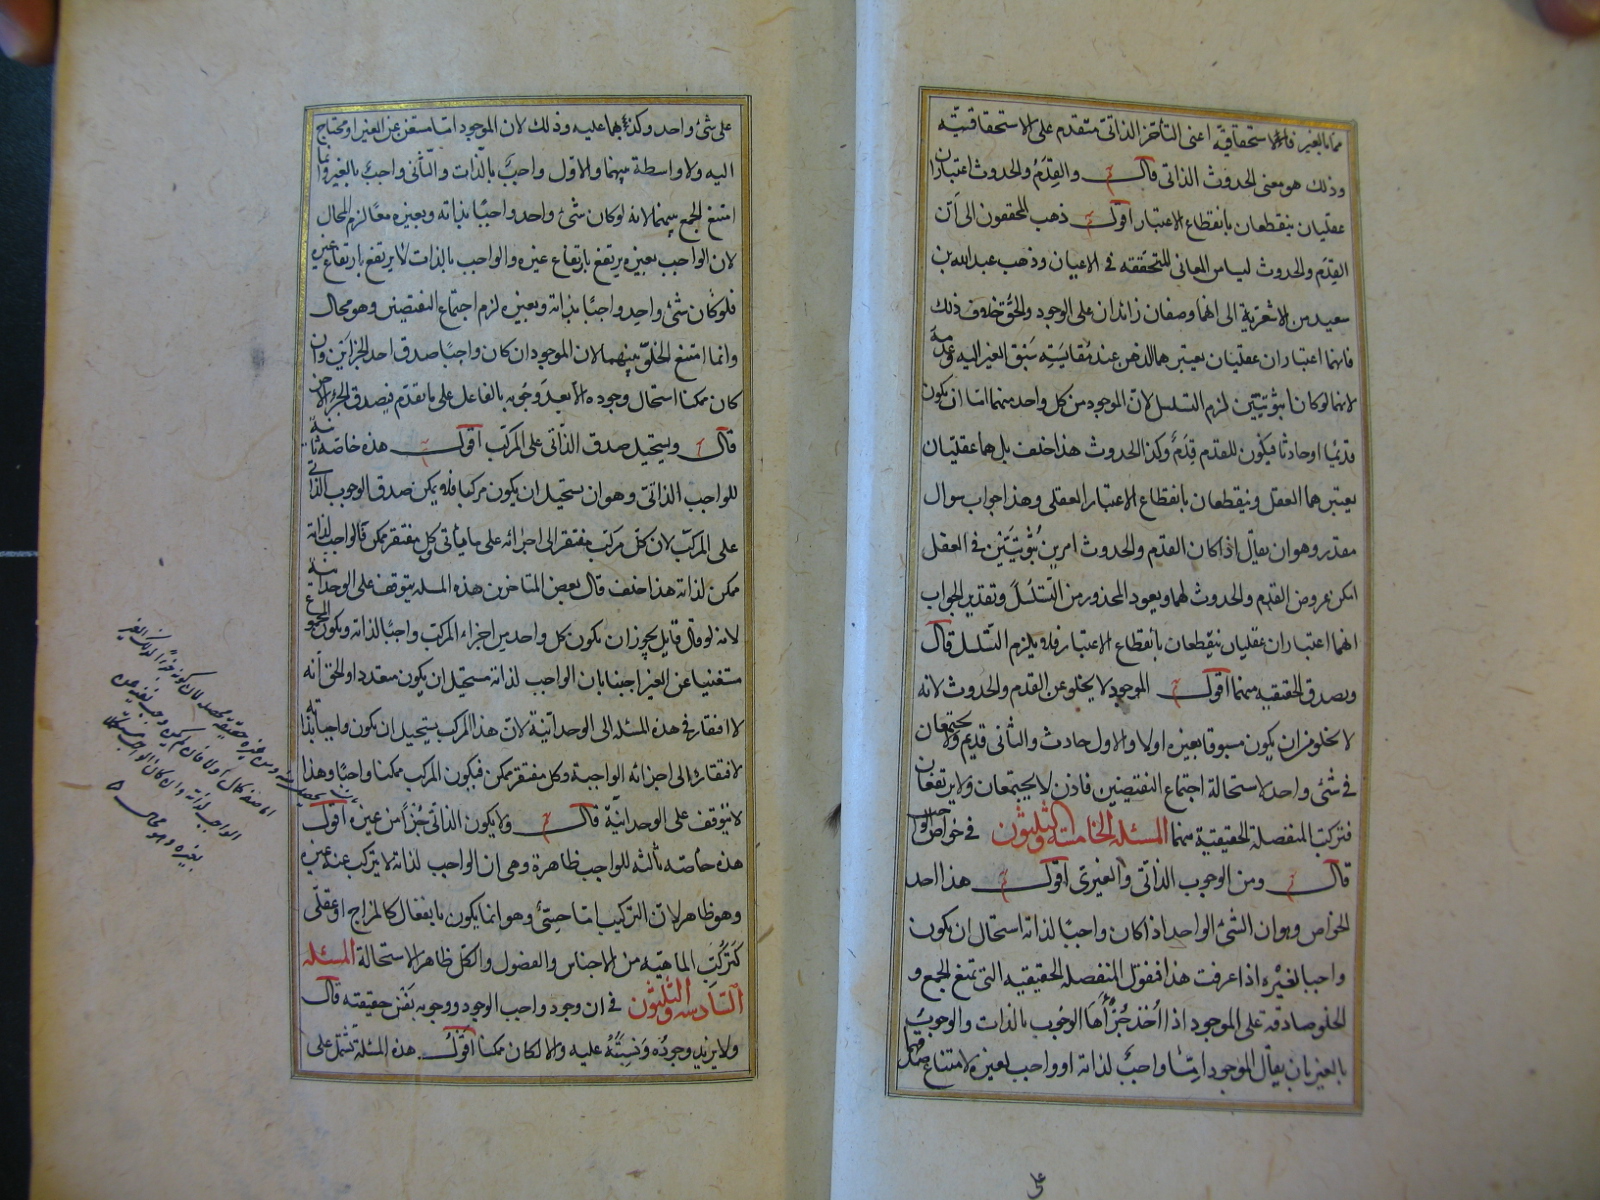 مما بالغير فالاستحقاقية اعنى التأخر الذاتى متقدم على الاستحقاقيته
وذلك هو معنى الحدوث الذاتى قال والقدم والحدوث اعتباران
عقليان ينقطعان بانقطاع الاعتبار اقول ذهب المحققون الى ان
القدم والحدوث ليسا من المعانى المتحققة فى الاعيان وذهب عبد الله بن
سعيد من الاشعرية الى انهما وصفان زائدان على الوجود والحق خلاف ذلك
فانهما اعتباران عقليان يعتبرهما الذهن عند مقايسته سبق الغير اليه وعدمه
لانهما لو كانا ثبوتيتين لزم التسلسل لان الموجود من كل واحد منهما اما ان يكون
قديما او حادثا فيكون للقدم قدم وكذا الحدوث هذا خلف بل هما عقليان
يعتبرهما العقل وينقطعان بانقطاع الاعتبار العقلى وهذا جواب سوال
مقدر وهو ان يقال اذا كان القدم والحدوث امرين ثبوتيتين فى العقل
امكن عروض القدم والحدوث لهما ويعود المحذور من التسلسل وتقدير الجواب
انهما اعتباران عقليان ينقطعان بانقطاع الاعتبار فلا يلزم التسلسل قال
ويصدق الحقيقيه منهما اقول الموجود لا يخلو عن القدم والحدوث لانه
لا يخلو من ان يكون مسبوقا بغيره اولا والاول حادث والثانى قديم ولا يجتمعان
فى شئ واحد لاستحالة اجتماع النقيضين فاذن لا يجتمعان ولا يرتفعان
فتركبت المنفصلة الحقيقية منهما المسئلة الخامسة والثلثون فى خواص الواجب
قال ومن الوجوب الذاتى والغيرى اقول هذا احد
الخواص وهو ان الشئ الواحد اذا كان واجبا لذاته استحال ان يكون
واجبا لغيره اذا عرفت هذا فنقول المنفصلة الحقيقيه التى تمنع الجمع و
الخلو صادقه على الموجود اذا اُخذ جُزْأها الوجوب بالذات والوجوب
بالغير بان يقال الموجود اما واجب لذاته او واجب لغيره لامتناع صدقهما
على
على شئ واحد وكذبهما عليه وذلك لان الموجود اما مستغن عن الغير او محتاج
اليه ولا واسطة بينهما والاول واجب بالذات والثانى واجب بالغير وانما
امتنع الجمع بينهما لانه لو كان شئ واحد واجبا بذاته وبغيره معا لزم المحال
لان الواجب بغيره يرتفع بارتفاع غيره والواجب بالذات لا يرتفع بارتفاع غيره
فلو كان شئ واحد واجبا بذاته وبغيره لزم اجتماع النقيضين وهو محال
وانما امتنع الخلو بينهما لان الموجود ان كان واجبا صدق احد الجزأين وان
كان ممكنا استحال وجوده الا بعد وجوبه بالفاعل على ما تقدم فيصدق الجزء الاخر
قال ويستحيل صدق الذاتى على المركب اقول هذه خاصة ثانية
للواجب الذاتى وهو ان يستحيل ان يكون مركبا فلا يمكن صدق الوجوب الذاتى
على المركب لان كل مركب مفتقر الى اجزائه على ما يأتى وكل مفتقر ممكن فالواجب لذاته
ممكن لذاته هذا خلف قال بعض المتاخرين هذه المسله يتوقف على الوحدانية
لانه لو قال قايل يجوز ان يكون كل واحد من اجزاء المركب واجبا لذاته ويكون المجموع
مستغنيا عن الغير اجبنا بان الواجب لذاته مستحيل ان يكون متعددا والحق انه
لا افتقار فى هذه المسئله الى الوحدانية لان هذا المركب يستحيل ان يكون واجبا لذاته
لافتقاره الى اجزائه الواجبة وكل مفتقر ممكن فيكون المركب ممكنا واجبا وهذا
لا يتوقف على الوحدانية قال ولا يكون الذاتى جزأ من غيره اقول
هذه خاصه ثالثه للواجب ظاهرة وهى ان الواجب لذاته لا يتركب عنه غيره
وهو ظاهر لان التركيب اما حسى وهو انما يكون بانفعال كالمزاج او عقلى
كتركب الماهيه من الاجناس والفصول والكل ظاهر الاستحالة المسئله
السادسه والثلثون فى ان وجود واجب الوجود ووجوبه نفس حقيقته قال
ولا يزيد وجوده ونسبته عليه والا لكان ممكنا اقول هذه المسئلة تشتمل على